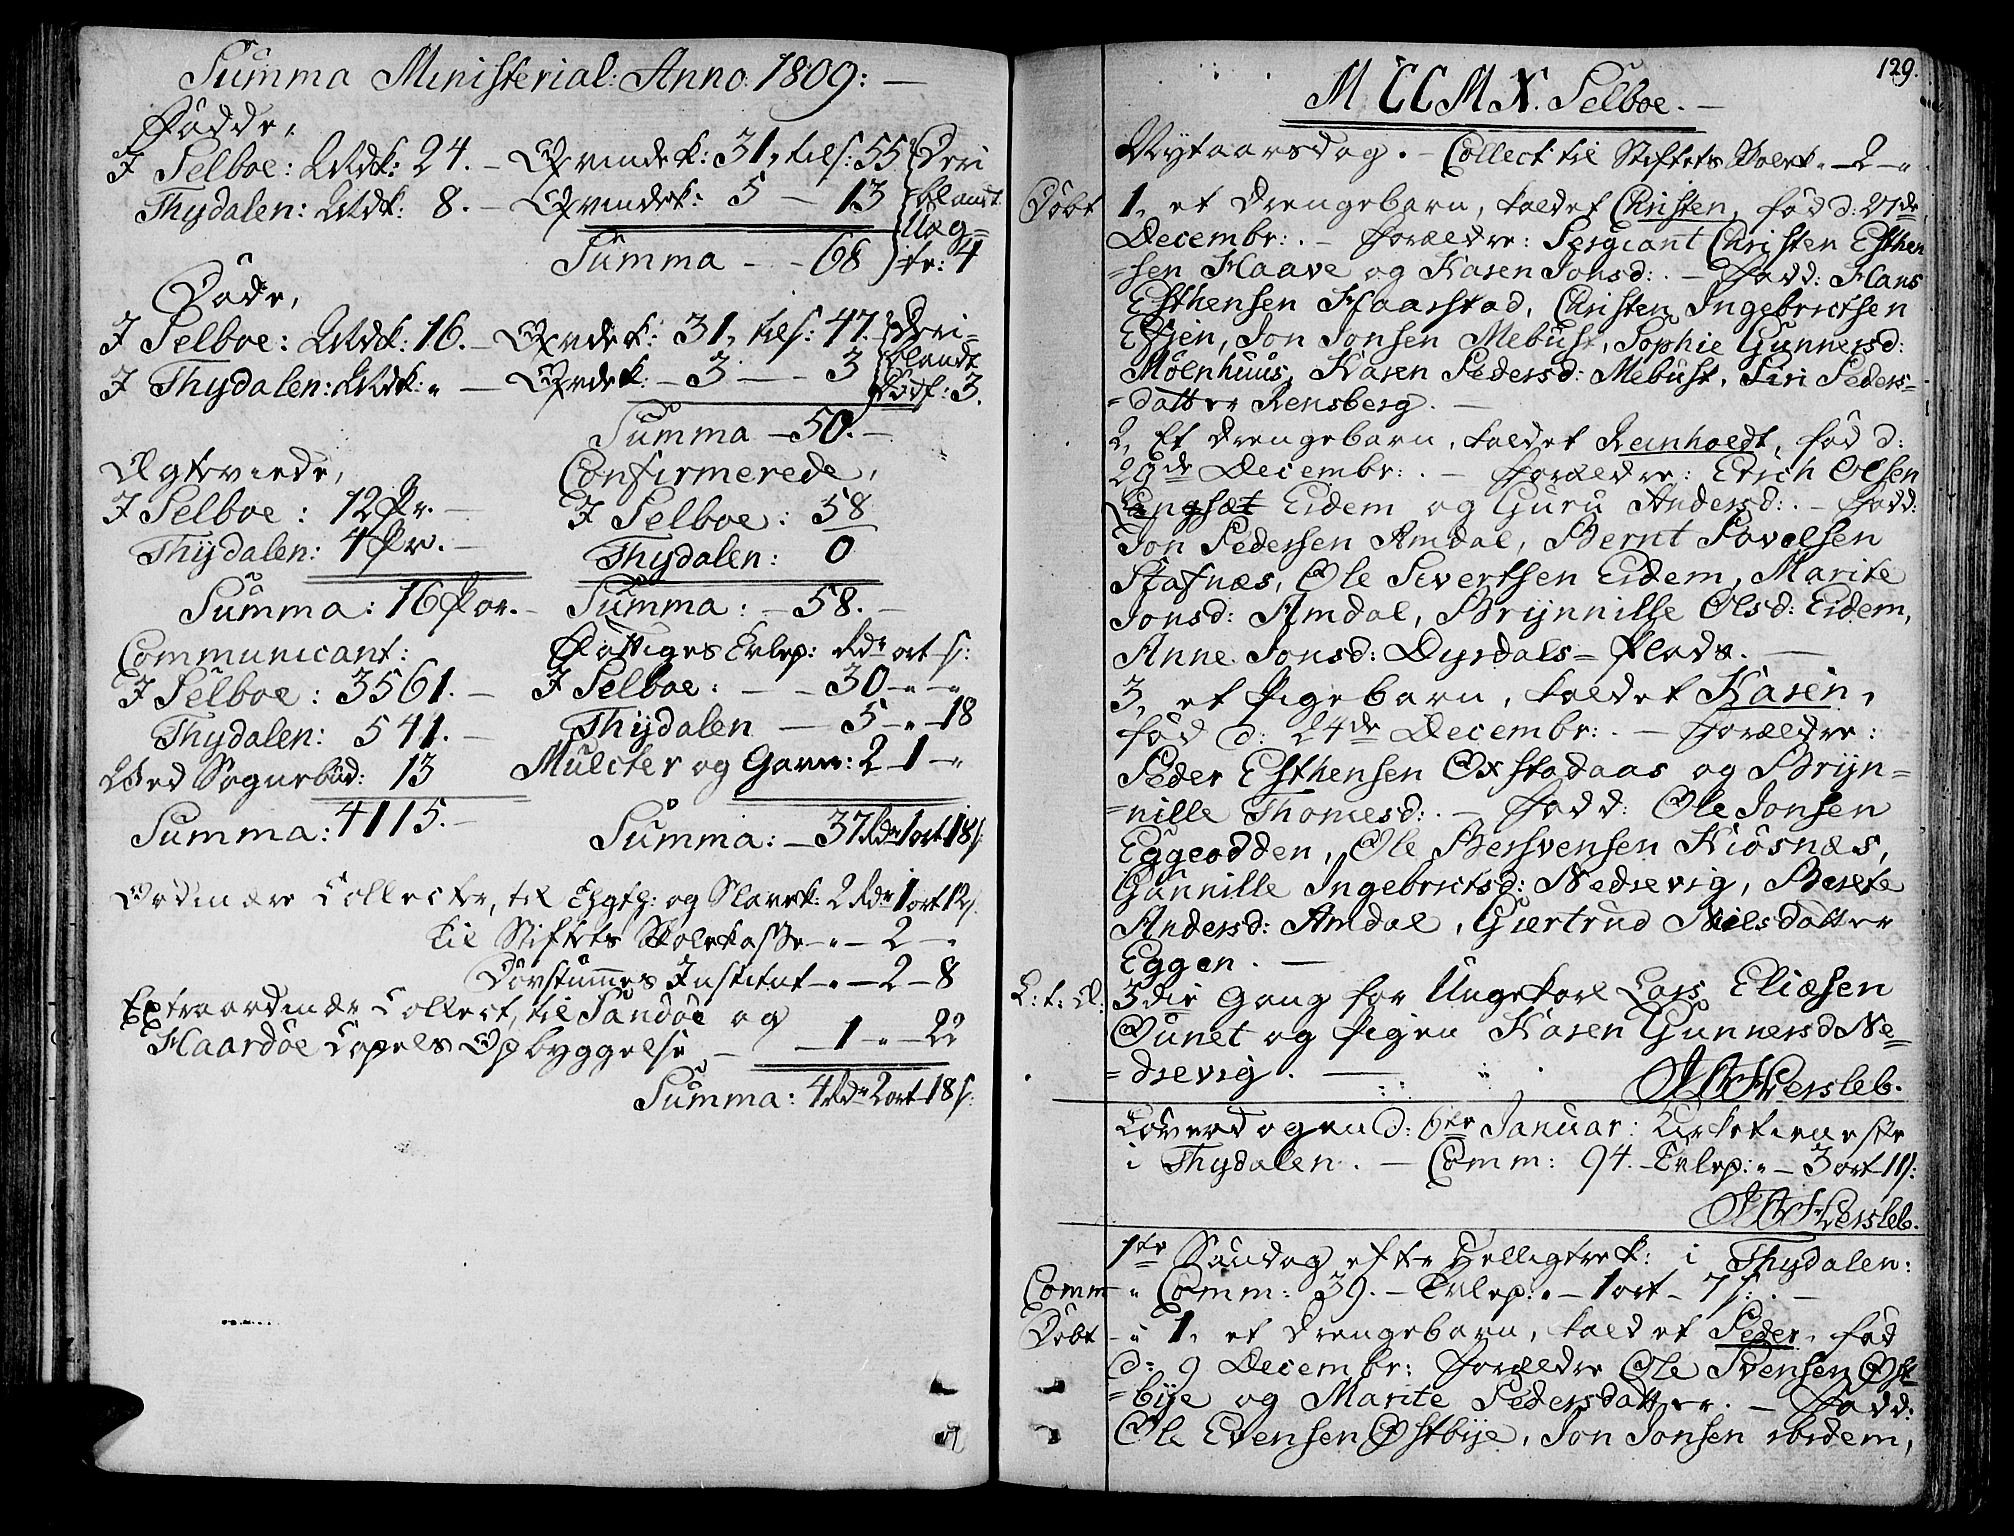 Summa Ministerial: Anno 1809: —
Fødde,
I Selboe: Mdk: 24. — Qvindek: 31, tils: 55 Deri
Thydalen: Mdk: 8. — Qvindek: 5 — 13 blandt
Uæg=
Summa - - 68 te: 4
Døde,
I Selboe: Mdk: 16. — Qvdek: 31, tils: 47. Deri=
I Thydalen: Mdk: „ — Qvdek: — 3 — 3 blandt
Dødf: 3.
Summa — 50. —
Ægteviede,
I Selboe: 12 Pr. —
Thydalen: 4 Pr. —
Summa: 16 Par. —
Confirmerede,
I Selboe: 58
Thydalen: 0
Summa: — 58. —
Communicant:
I Selboe: 3561. —
Thydalen: 541. —
Ved Sognebud: 13
Summa: 4115. —
Fattiges Erlep: Rdr ort s:
I Selboe: — - 30 - „ - „
Thydalen — 5 - „ - 18
Mulcter og Gaver: 2 - 1 - „
Summa: — 37 Rdr 1 ort 18 s:
Ordinære Collecter, til og Slavek: 2 Rdr 1 ort 12 s:
til Stiftets Skolekasse - „ - 2 - „
Døvstummes Institut - „ - 2 - 8
Extraordinær Collect, til Sandøe og
Haardøe Capels Opbyggelse — 1 - „ - 22
Summa: 4 Rdr 2 ort 18 s:
129.
M CCM X. Selboe. —
Nytaarsdag. — Collect til Stiftets Skolek. „ - 2 - „
Døbt 1, et Drengebarn, kaldet Christen, fød d: 27de
Decembr: . — Forældre: Sergiant Christen Esthen
=sen Haave og Karen Johsd: . — Fadd: Hans
Esthensen Haarstad, Christen Ingebrictsen
Evjen, Jon Jonsen Mebust, Sophie Gunnersd:
Moenhuus, Karen Pedersd: Mebust, Siri Peders=
=datter Rensberg. —
2, Et Drengebarn, kaldet Reinholdt, fød d:
29de Decembr: . — Forældre: Erich Olsen
Langsæt Eidem og Guru Andersd: . — Fadd:
Jon Pedersen Amdal, Bernt Pavelsen
Stafnæs, Ole Sivertsen Eidem, Marite
Jonsd: Amdal, Brynnille Olsd: Eidem,
Anne Jonsd: Dyrdals=Plads. —
3, et Pigebarn, kaldet Karen,
fød d: 24de Decembr: . — Forældre:
Peder Esthensen Oxstadaas og Bryn=
=nille Thomesd: . — Fadd: Ole Jonsen
Eggeodden, Ole Bersvensen Kiøsnæs,
Gunnille Ingebrictsd: Nedrevig, Berete
Andersd: Amdal, Giertrud Nilsdatter
Eggen. —
L: t: Æ: 3die Gang for Ungekarl Lars Eliæsen
Ounet og Pigen Karen Gunnersd Ne=
=drevig. —
Hersleb.
Løverdagen d: 6te Januar: Kirketieneste
i Thydalen. — Comm: 94. — Erlep: „ - 3 ort 11 s:
Hersleb.
1te Søndag efter Helligtrek: i Thydalen:
Comm „ Comm: 39. — Erlep: „ - 1 ort - 7 s: . —
Døbt - „ 1, et Drengebarn, kaldet Peder, fød
d: 9 Decembr: Forældre Ole Svensen Øst=
=bye og Marite Pedersdatter. — Fadd:
Ole Evensen Østbye, Jon Jonsen